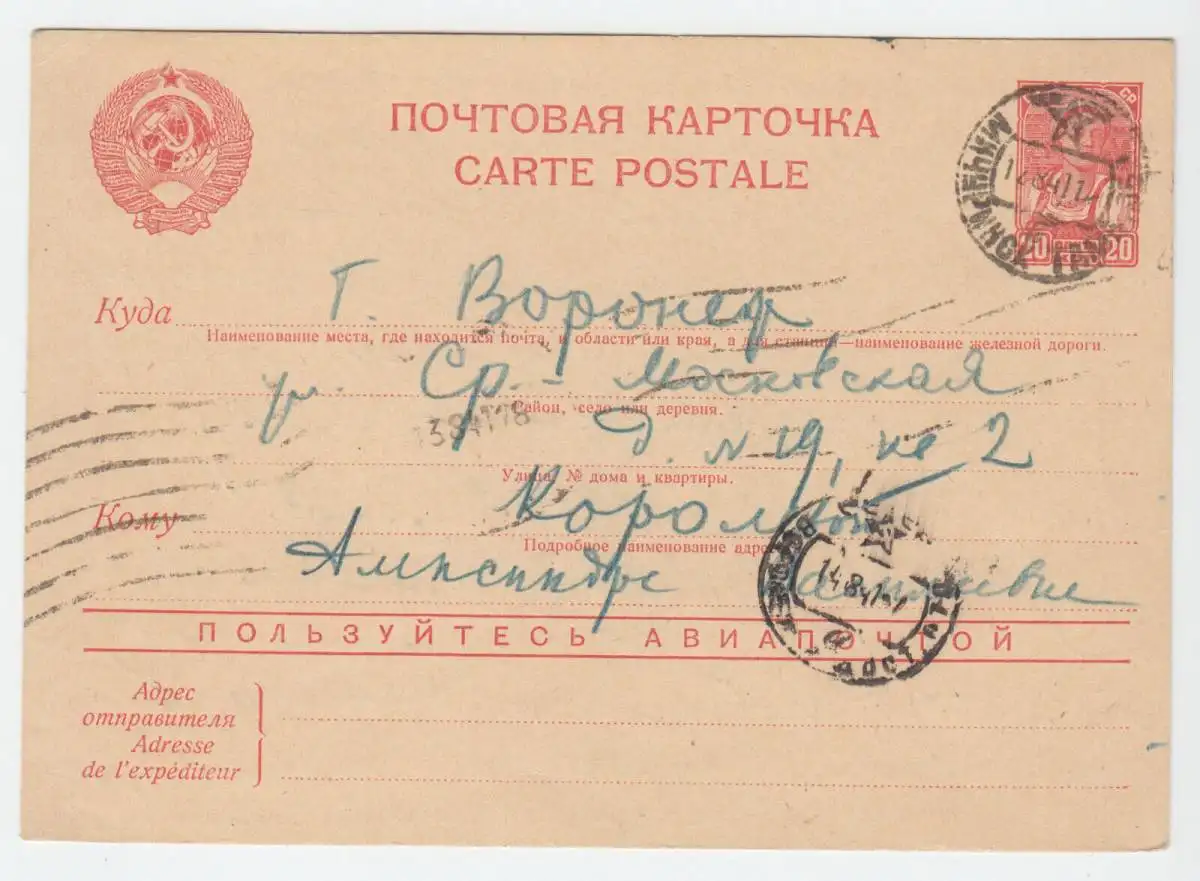 ПОЧТОВАЯ КАРТОЧКА
CARTE POSTALE
СР
20 20
Куда г. Воронеж
Наименование места, где находится почта, и области или края, а для станции—наименование железной дороги.
ул. Ср.-Московская
Район, село или деревня.
Д. N 19, кв 2
Улица, № дома и квартиры.
Кому Королевой
Подробное наименование
ПОЛЬЗУЙТЕСЬ АВИАПОЧТОЙ
Адрес
отправителя
Adresse
de l'expéditeur